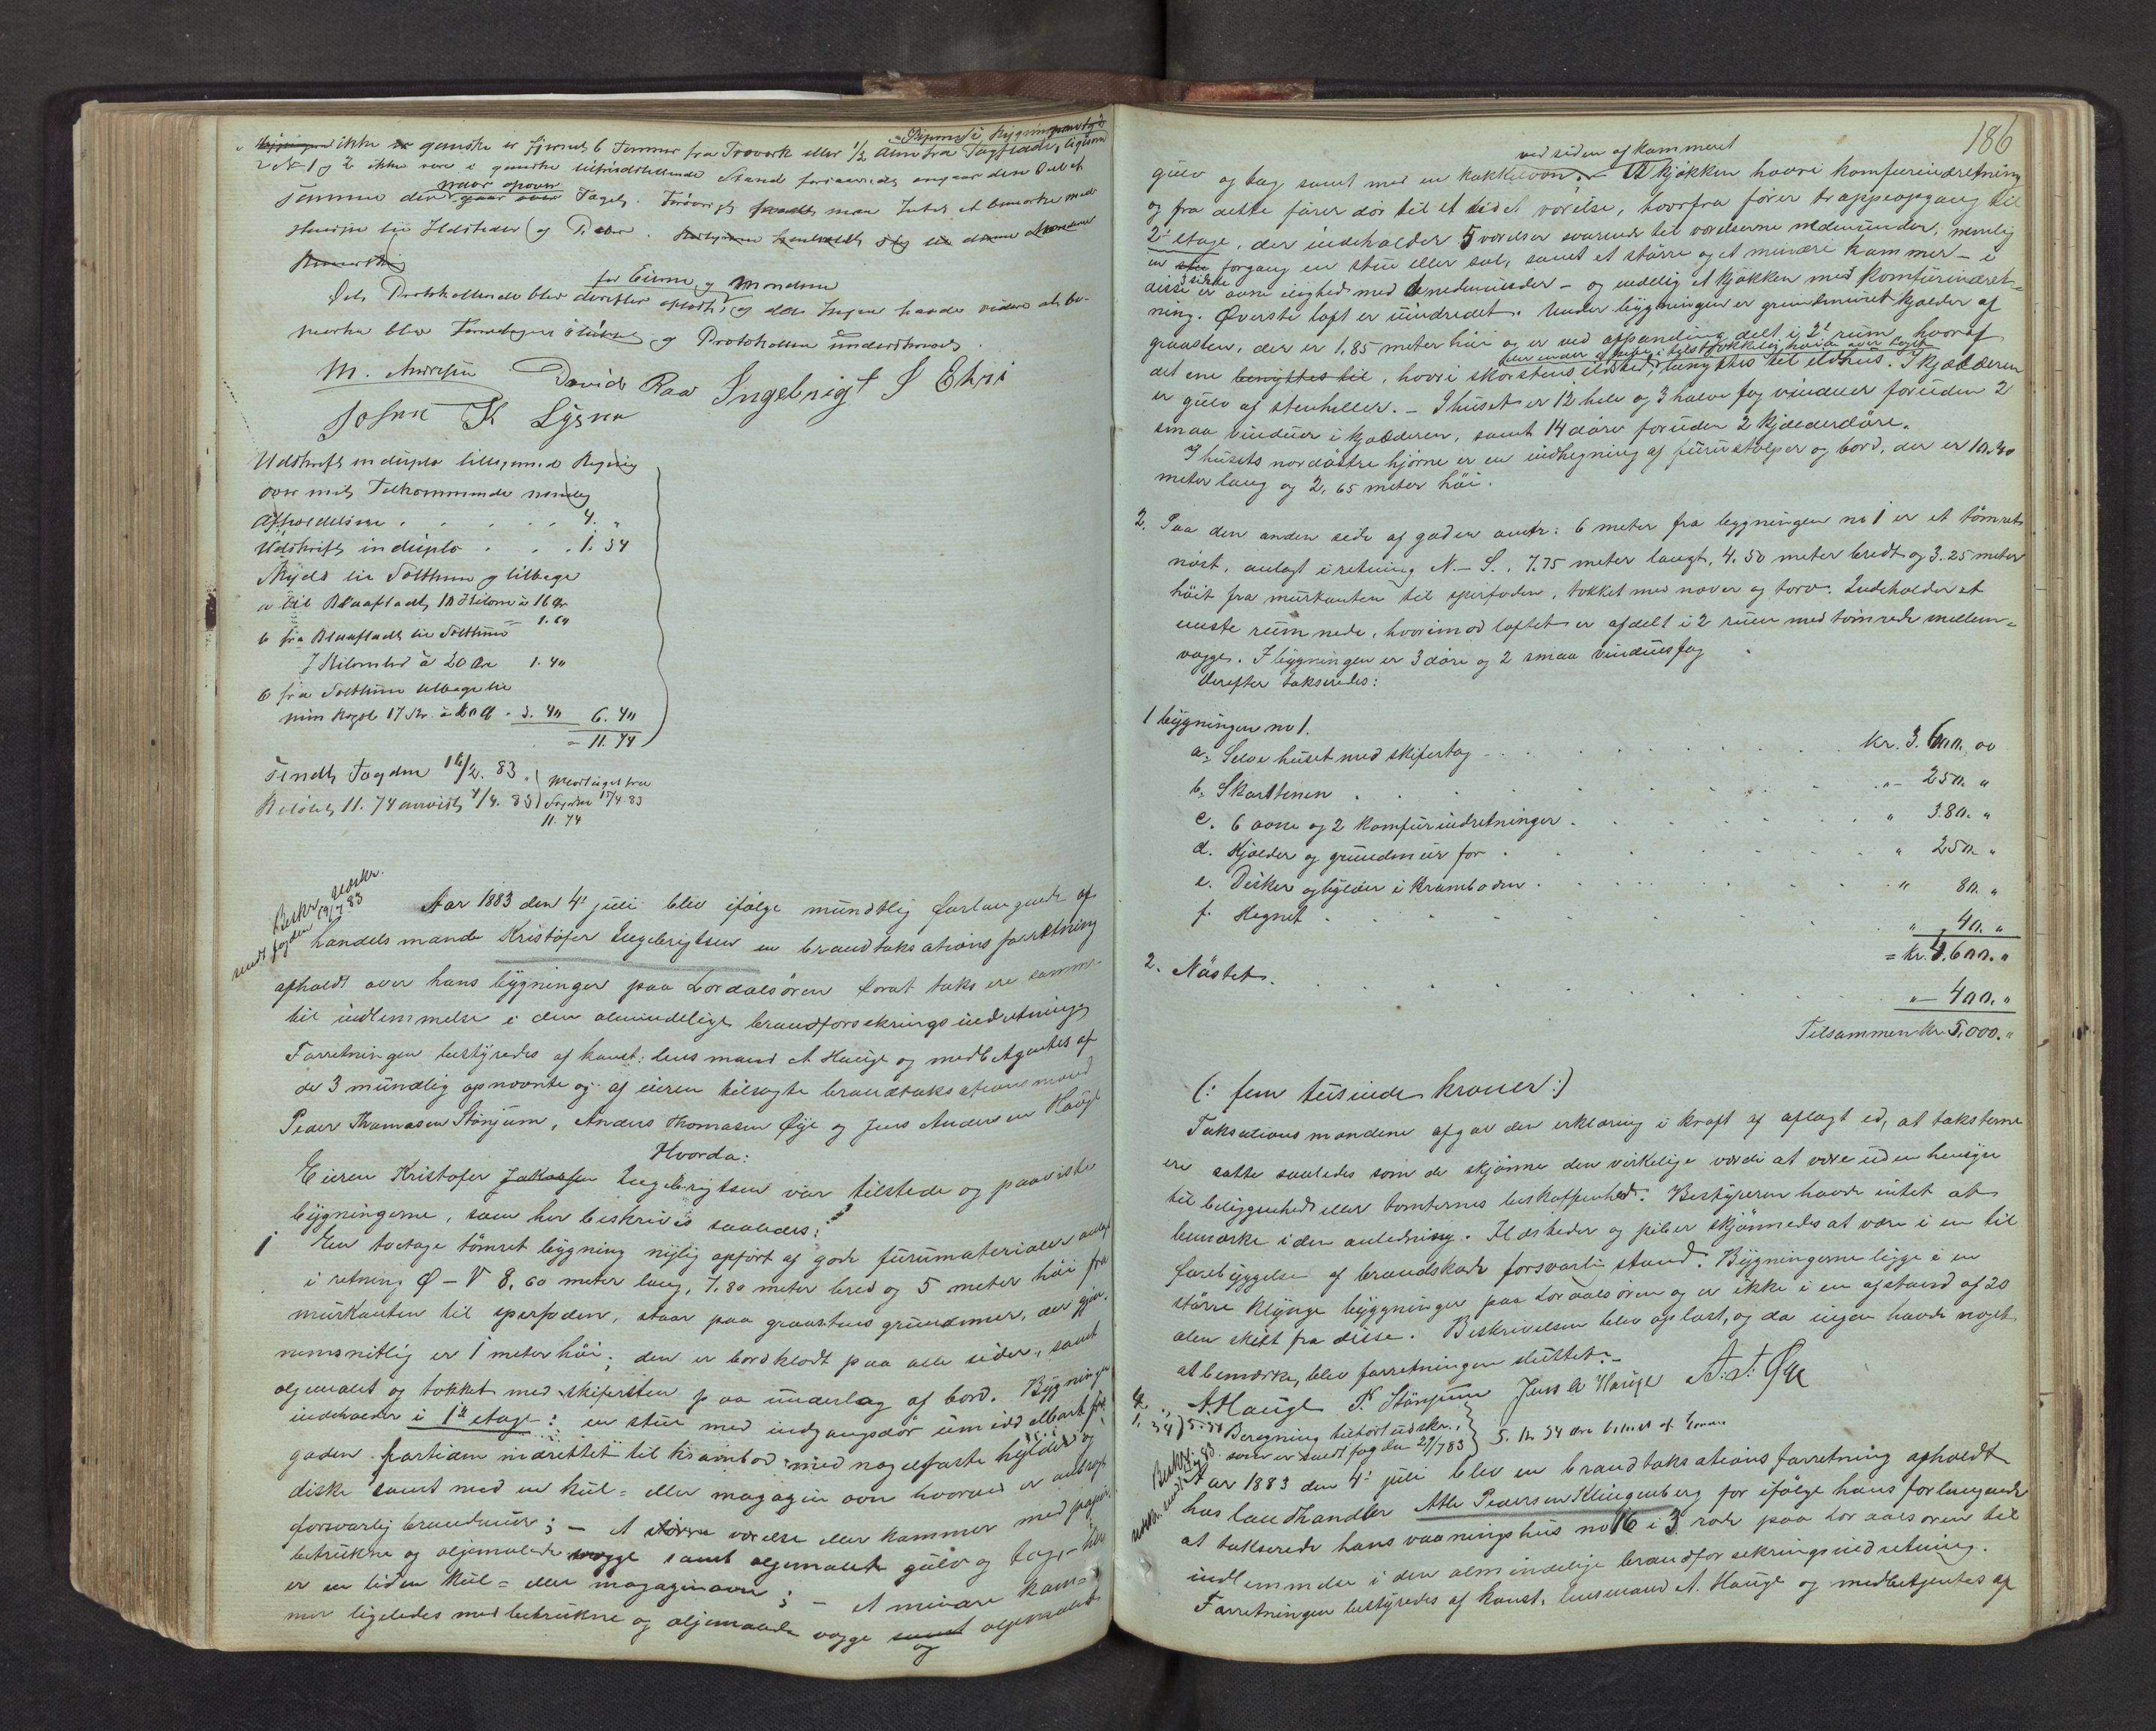 Piperne i
ikke ganske er fjernet 6 Tommer fra Træverk eller 1/2 Alen fra Tagflade, ligesom
No 1 og 2 ikke vare i ganske Stand forsaavidt angaar den Del af
naar opover
samme der gaar over Taget. Forøvrigt fandt man Intet at bemærke med
Hensyn til Ildsteder og Piber.
for Eieren og Mændene
Det Protokollerede blev derefter oplæst, og da Ingen havde videre at be-
mærke blev Forretningen sluttet og Protokollen underskreven.
M. Andresen David Raa Ingebrigt J Ehri
Johan K Lysne
Udskrift in duplo tilligemed Regning
over mit Tilkommende nemlig
Afholdelsen . . . . . 4. "
Udskrift in duplo . . . 1. 34
Skyds til Solthun og tilbage
a til Blaafladt 10 Kilom à 16 Ør
1. 60
b fra Blaafladt til Solthun
7 Kilomtr à 20 Øre 1. 40
c fra Solthun tilbage til
min Bopæl 17 Kr. à 20 Ø . 3. 40 6. 40
= 11. 74
Sendt Fogden 16/2. 83.
Beløbet 11. 74 anvist 4/4. 83
Modtaget fra
Fogden 17/4 83
11. 74
Bekr. Udskr.
sendt fogden 19/7 83
Aar 1883 den 4de juli blev ifølge mundtlig forlangende af
handelsmand Kristofer Ingebrigtsen en brandtaksationsforretning
afholdt over hans bygninger paa Lærdalsøren forat taksere samme
til indlemmelse i den almindelige brandforsikringsindretning
Forretningen bestyredes af konst: lensmand A Hauge og medbetjentes af
de 3 mundtlig opnævnte og af eieren tilsagte brandtaksationsmænd
Peder Thomasen Stønjum, Anders Thomasen Øye og Jens Andersen Hauge
Hvorda:
Eieren Kristofer Jakobsen Ingebrigtsen var tilstede og paaviste
bygningerne, som her beskrives saaledes:
1 En toetage tømret bygning nylig opført af gode furumaterialer anlagt
i retning Ø – V 8,60 meter lang, 7.80 meter bred og 5 meter høi fra
murkanten til sperfoden, staar paa graastens grundmur, der gjen-
nemsnitlig er 1 meter høi; den er bordklædt paa alle sider, samt
oljemalet og tækket med skifersten paa underlag af bord. Bygningen
indeholder i 1ste etage: en stue med indgangsdør umiddelbart fra
gaden fortiden indrettet til krambod med nagelfaste hylder og
diske samt med en kul- eller magazin ovn hvorved er anbragt
forsvarlig brandmur; – et større værelse eller kammer med papir
betrukne og oljemalede vægge samt oljemalet gulv og tag, – her
er en liden kul- eller magazinovn; – et mindre kam-
mer ligeledes med betrukne og oljemalede vægge samt oljemalet
og
186
ved siden af kammeret
gulv og tag samt med en kakkelovn; – Et kjøkken hvori komfurindretning
og fra dette fører dør til et lidet værelse, hvorfra fører trappeopgang til
2den etage, der indeholder 5 værelser svarende til værelserne nedenunder, nemlig
en stue forgang en stue eller sal, samt et større og et mindre kammer – i
disse sidste er ovne i lighed med nedenunder – og endelig et kjøkken med komfurindret-
ning. Øverste loft er uindredet. Under bygningen er grundmuret kjælder af
graasten, der er 1,85 meter høi og er ved afpanding delt i 2de rum, hvoraf
det ene benyttes til, hvori skorstens ildsted, benyttes til ildhus. I kjælderen
er gulv af stenheller. – I huset er 12 hele og 3 halve fag vinduer foruden 2
smaa vinduer i kjælderen, samt 14 døre foruden 2 kjælderdøre.
I husets nordøstre hjørne er en indhegning af furustolper og bord, der er 10.40
meter lang og 2.65 meter høi.
2. Paa den anden side af gaden omtr: 6 meter fra bygningen no 1 er et tømret
nøst, anlagt i retning N. – S. 7.75 meter langt, 4.50 meter bredt og 3.25 meter
høit fra murkanten til sperfoden, tækket med næver og torv. Indeholder et
eneste rum nede, hvorimod loftet er afdelt i 2 rum med tømrede mellem-
vægge. I bygningen er 3 døre og 2 smaa vinduesfag
Derefter takseredes:
1 bygningen no 1.
a. Selve huset med skifertag . . . Kr. 3.600. 00
b. Skorstenen . . . " 250. "
c. 6 ovne og 2 komfurindretninger . . . " 380. "
d. Kjælder og grundmur for . . . " 250. "
e. Disker og hylder i kramboden . . . " 80. "
f. Hegnet . . . " 40. "
= Kr. 4.600. "
2. Nøstet . . . " 400. "
Tilsammen Kr. 5,000. "
(: fem tusinde kroner :)
Taksationsmændene afgav den erklæring i kraft af aflagt ed, at taksterne
ere satte saaledes som de skjønne den virkelige værdi at være uden hensyn
til beliggenhed eller tomternes beskaffenhed. Bestyreren havde intet at
bemærke i den anledning. Ildsteder og piber skjønnedes at være i en til
forebyggelse af brandskade forsvarlig stand. Bygningerne ligge i en
større klynge bygninger paa Lærdalsøren og er ikke i en afstand af 20
alen skilt fra disse. Beskrivelsen blev oplæst, og da ingen havde noget
at bemærke, blev forretningen sluttet. –
A. Hauge P. Stønjum Jens A Hauge A. T. Øye
4. "
1. 34 5. 34
Beregning tilført udskr.,
som er sendt fogden 29/7 83
5. Kr 34 øre
Aar 1883 den 4de juli blev en brandtaksationsforretning afholdt
hos landhandler Atle Pedersen Klingenberg for ifølge hans forlangende
at taksere hans vaaningshus no 16 i 3 rode paa Lærdalsøren til
indlemmelse i den almindelige brandforsikringsindretning.
Forretningen bestyredes af konst. lensmand A. Hauge og medbetjentes af